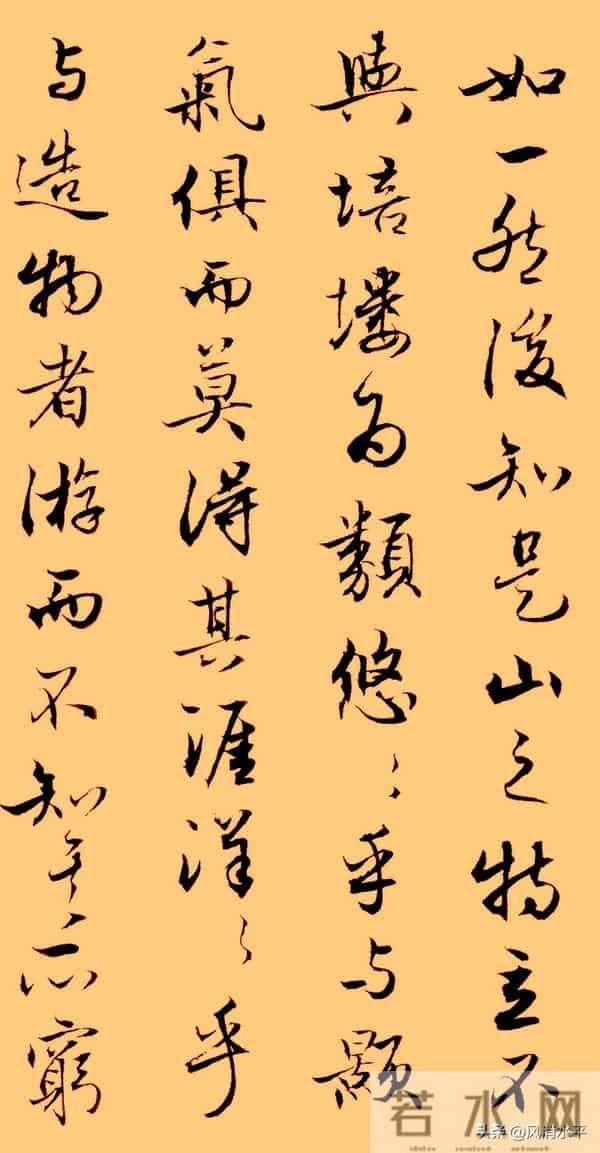 如一然後知是山之特立不
與培塿為類悠〻乎与顥
氣俱而莫得其涯洋〻乎
与造物者游而不知其所窮
若水网
头条 @风消水平